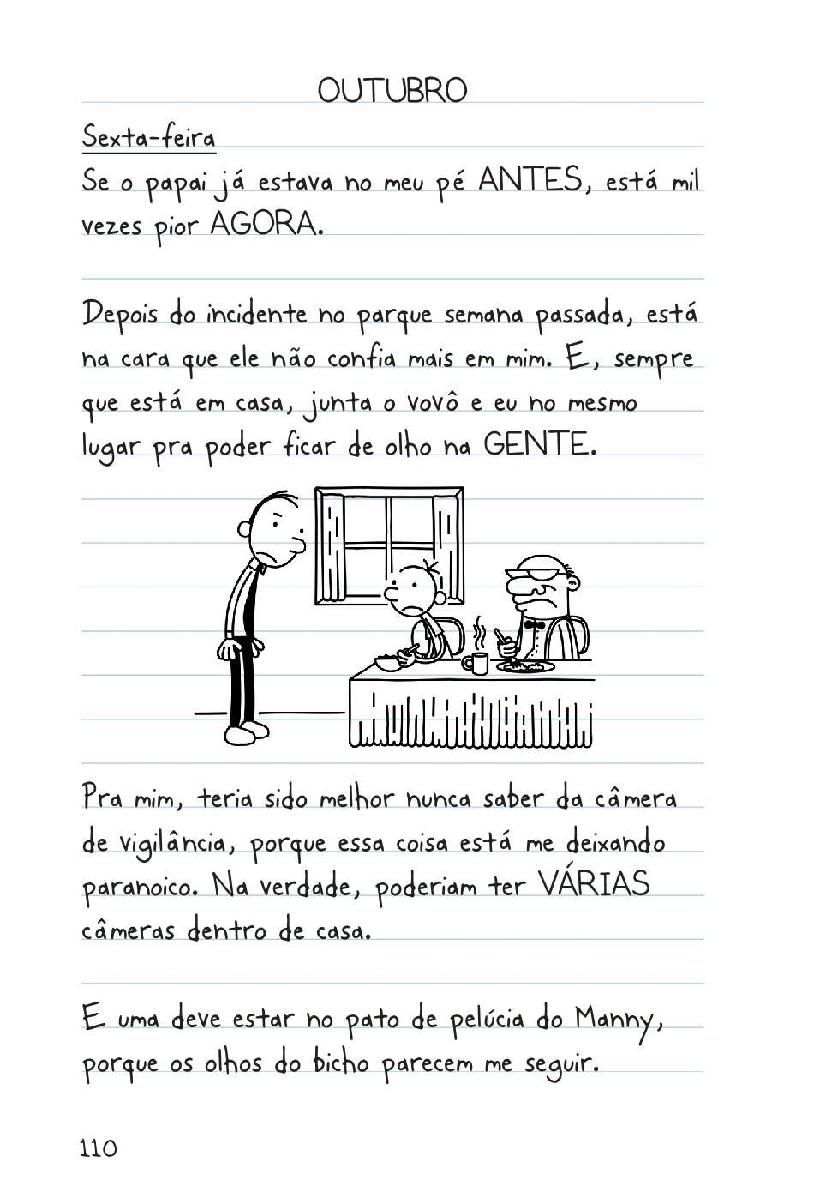 OUTUBRO
Sexta-feira
Se o papai já estava no meu pé ANTES, está mil
vezes pior AGORA.
Depois do incidente no parque semana passada, está
na cara que ele não confia mais em mim. E, sempre
que está em casa, junta o vovô e eu no mesmo
lugar pra poder ficar de olho na GENTE.
Pra mim, teria sido melhor nunca saber da câmera
de vigilância, porque essa coisa está me deixando
paranoico. Na verdade, poderiam ter VÁRIAS
câmeras dentro de casa.
E uma deve estar no pato de pelúcia do Manny,
porque os olhos do bicho parecem me seguir.
110